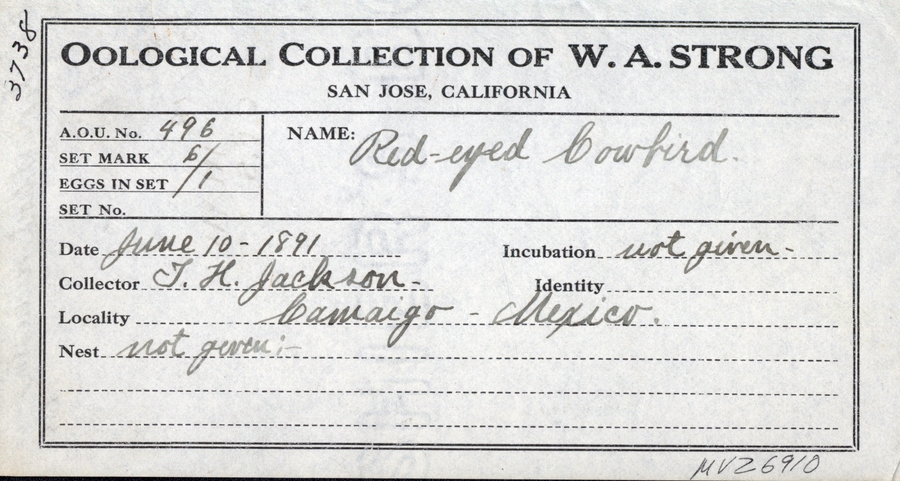 3738
OOLOGICAL COLLECTION OF W. A. STRONG
SAN JOSE, CALIFORNIA
A.O.U. No. 496
NAME: Red-eyed Cowbird.
SET MARK 6/
EGGS IN SET /1
SET No.
Date June 10-1891
Incubation not given-
Collector T. H. Jackson-
Identity
Locality Camaigo - Mexico.
Nest not given:-
MVZ 6910